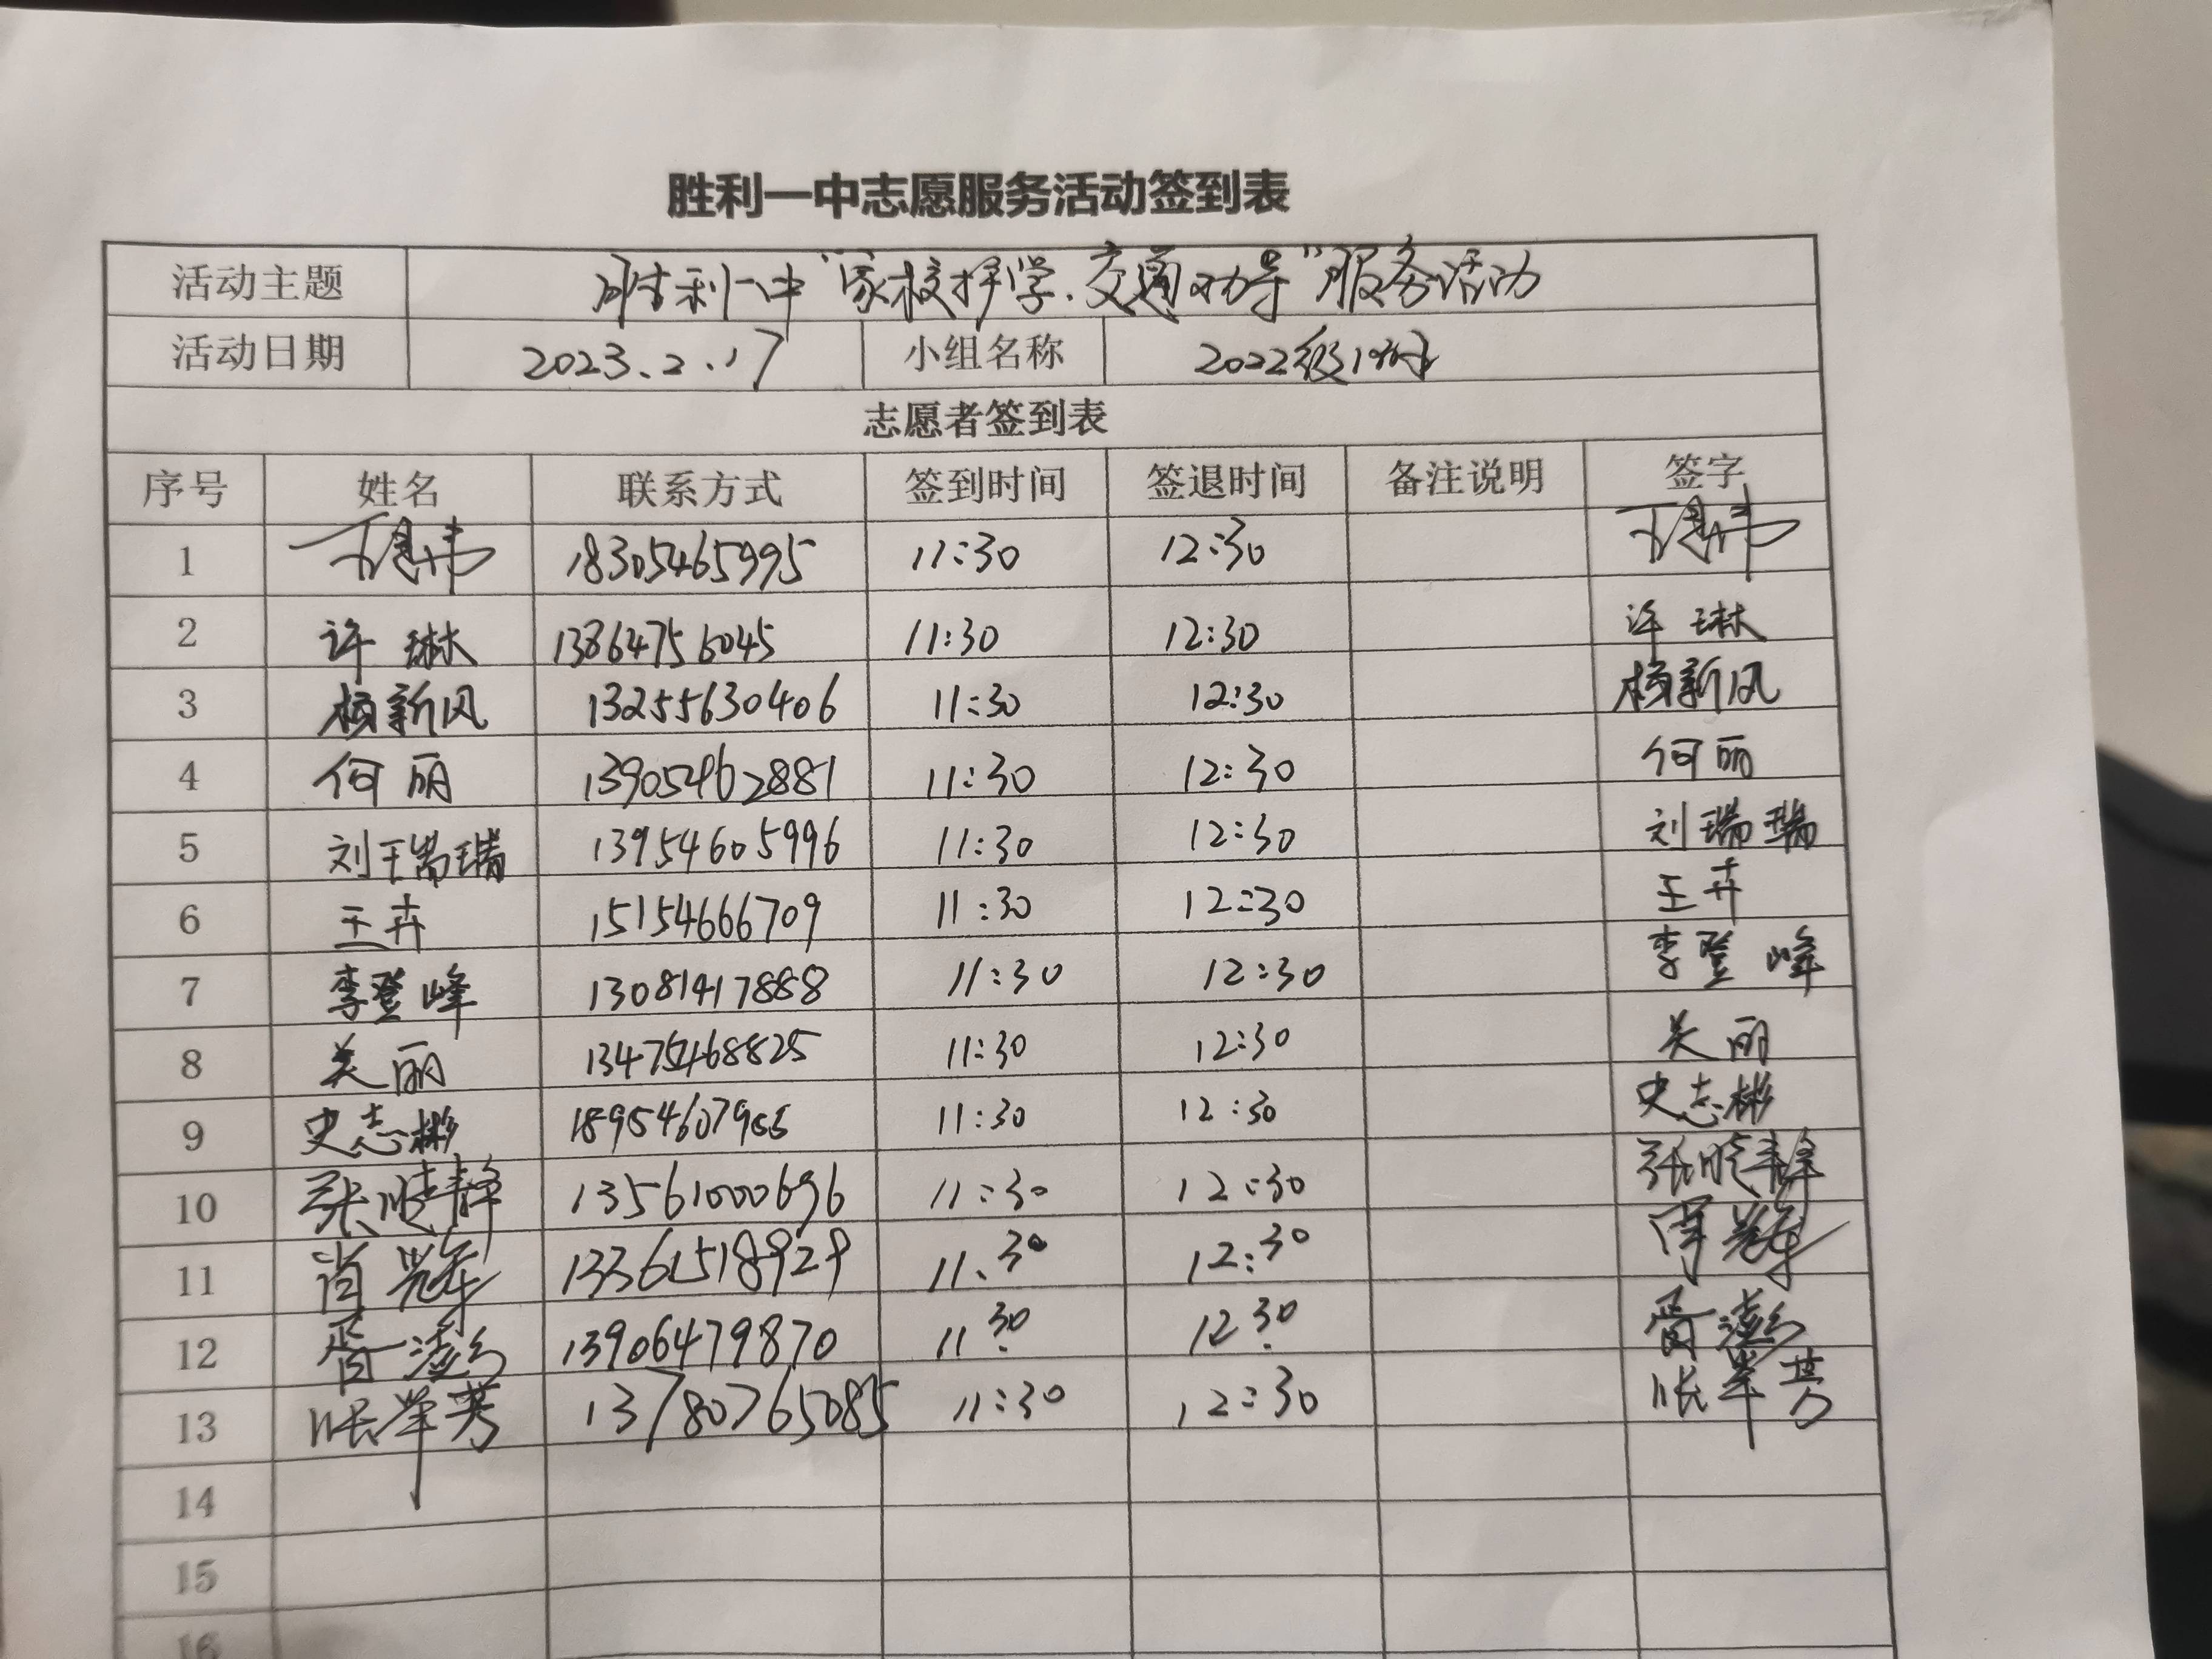 胜利一中志愿服务活动签到表
活动主题 胜利一中“家校护学、交通劝导”服务活动
活动日期 2023.2.17 小组名称 2022级19班
志愿者签到表
序号 姓名 联系方式 签到时间 签退时间 备注说明 签字
1 18305465995 11:30 12:30
2 许琳 13864756045 11:30 12:30 许琳
3 杨新风 13255630406 11:30 12:30 杨新风
4 何丽 13905462881 11:30 12:30 何丽
5 刘瑞瑞 13954605996 11:30 12:30 刘瑞瑞
6 王卉 15154666709 11:30 12:30 王卉
7 李登峰 13081417888 11:30 12:30 李登峰
8 关丽 13475468825 11:30 12:30 关丽
9 史志彬 11:30 12:30 史志彬
10 张晓静 13561000696 11:30 12:30 张晓静
11 13361518929 11:30 12:30
12 13906479870 11:30 12:30
13 张举芳 13780765085 11:30 12:30 张举芳
14
15
16